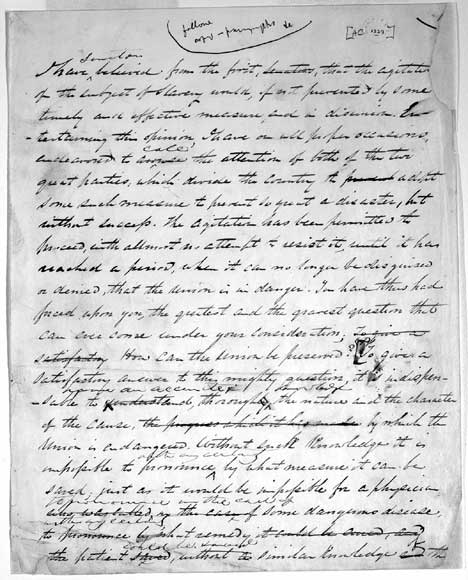 follow
copy – paragraphs &c
Senators
I have, believed from the first, senators, that the agitation
of the subject of slavery would, if not prevented by some
timely and effective measure, end in disunion. En-
-tertaining this opinion I have on all proper occasions,
call
endeavored to arouse the attention of both of the two
great parties, which divide the country to prevent adopt
some such measure to prevent so great a disaster, but
without success. The agitation has been permitted to
proceed, with allmost no attempt to resist it, until it has
reached a period, when it can no longer be disguised
or denied, that the Union is in danger. You have thus had
forced upon you, the greatest and the gravest question that
can ever come under your consideration; To give a
satisfactory How can the Union be preserved? To give a
satisfactory answer to this mighty question, it is indispen-
have an accurate knowledge
-sable to understand, thorough, the nature and the character
of the cause, the progress by which the
Union is endangered. Without such Knowledge it is
with any certainty
impossible to pronounce, by what measure it can be
saved, just as it would be impossible for a physician
to pronounce in the case
who, was called, in the case, of some dangerous disease,
with any certainty
to pronounce by what remedy, it could be cured, and
could be saved
the patient saved, without similar Knowledge of the